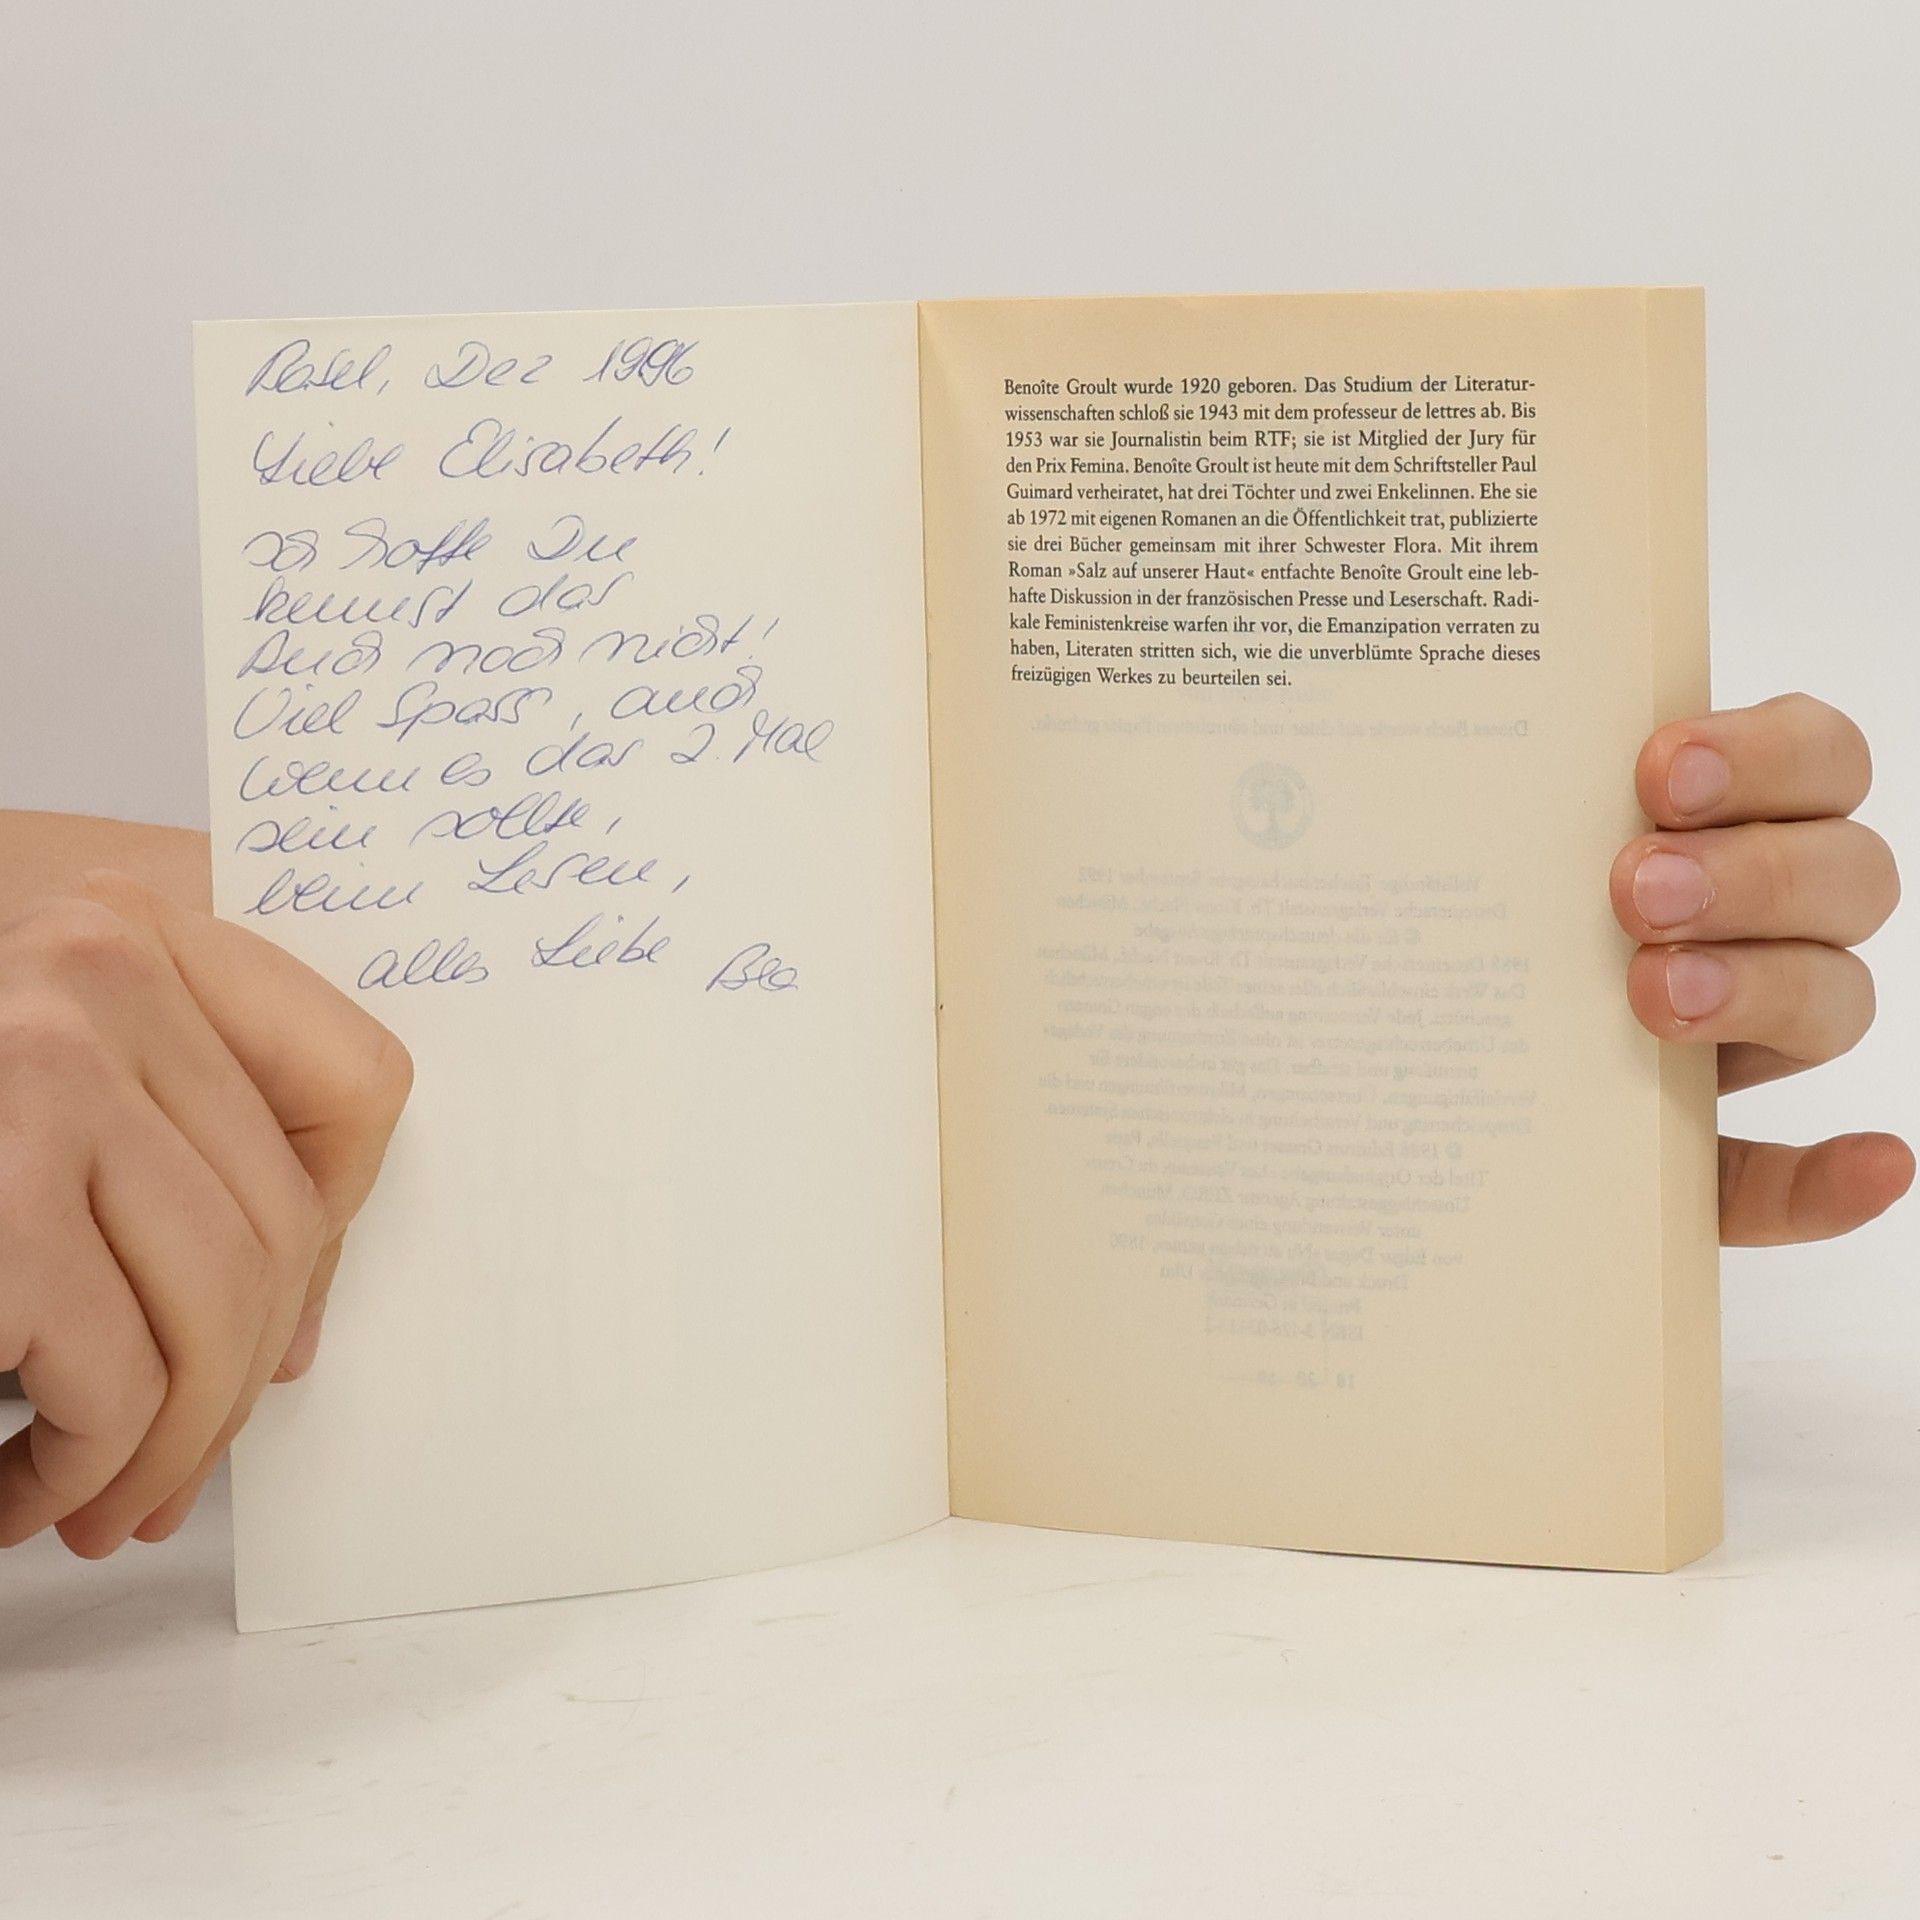 Basel, Dez 1996
Liebe Elisabeth!
Ich hoffe Du
kennst das
Buch noch nicht!
Viel Spass, auch
wenn es das 2. Mal
sein sollte,
beim Lesen,
alles Liebe Bea
Benoîte Groult wurde 1920 geboren. Das Studium der Literatur-
wissenschaften schloß sie 1943 mit dem professeur de lettres ab. Bis
1953 war sie Journalistin beim RTF; sie ist Mitglied der Jury für
den Prix Femina. Benoîte Groult ist heute mit dem Schriftsteller Paul
Guimard verheiratet, hat drei Töchter und zwei Enkelinnen. Ehe sie
ab 1972 mit eigenen Romanen an die Öffentlichkeit trat, publizierte
sie drei Bücher gemeinsam mit ihrer Schwester Flora. Mit ihrem
Roman »Salz auf unserer Haut« entfachte Benoîte Groult eine leb-
hafte Diskussion in der französischen Presse und Leserschaft. Radi-
kale Feministenkreise warfen ihr vor, die Emanzipation verraten zu
haben, Literaten stritten sich, wie die unverblümte Sprache dieses
freizügigen Werkes zu beurteilen sei.